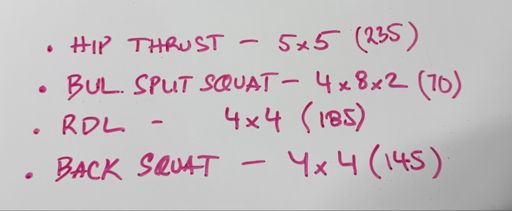 • HIP THRUST – 5x5 (235)
• BUL. SPLIT SQUAT – 4x8x2 (70)
• RDL – 4x4 (185)
• BACK SQUAT – 4x4 (145)